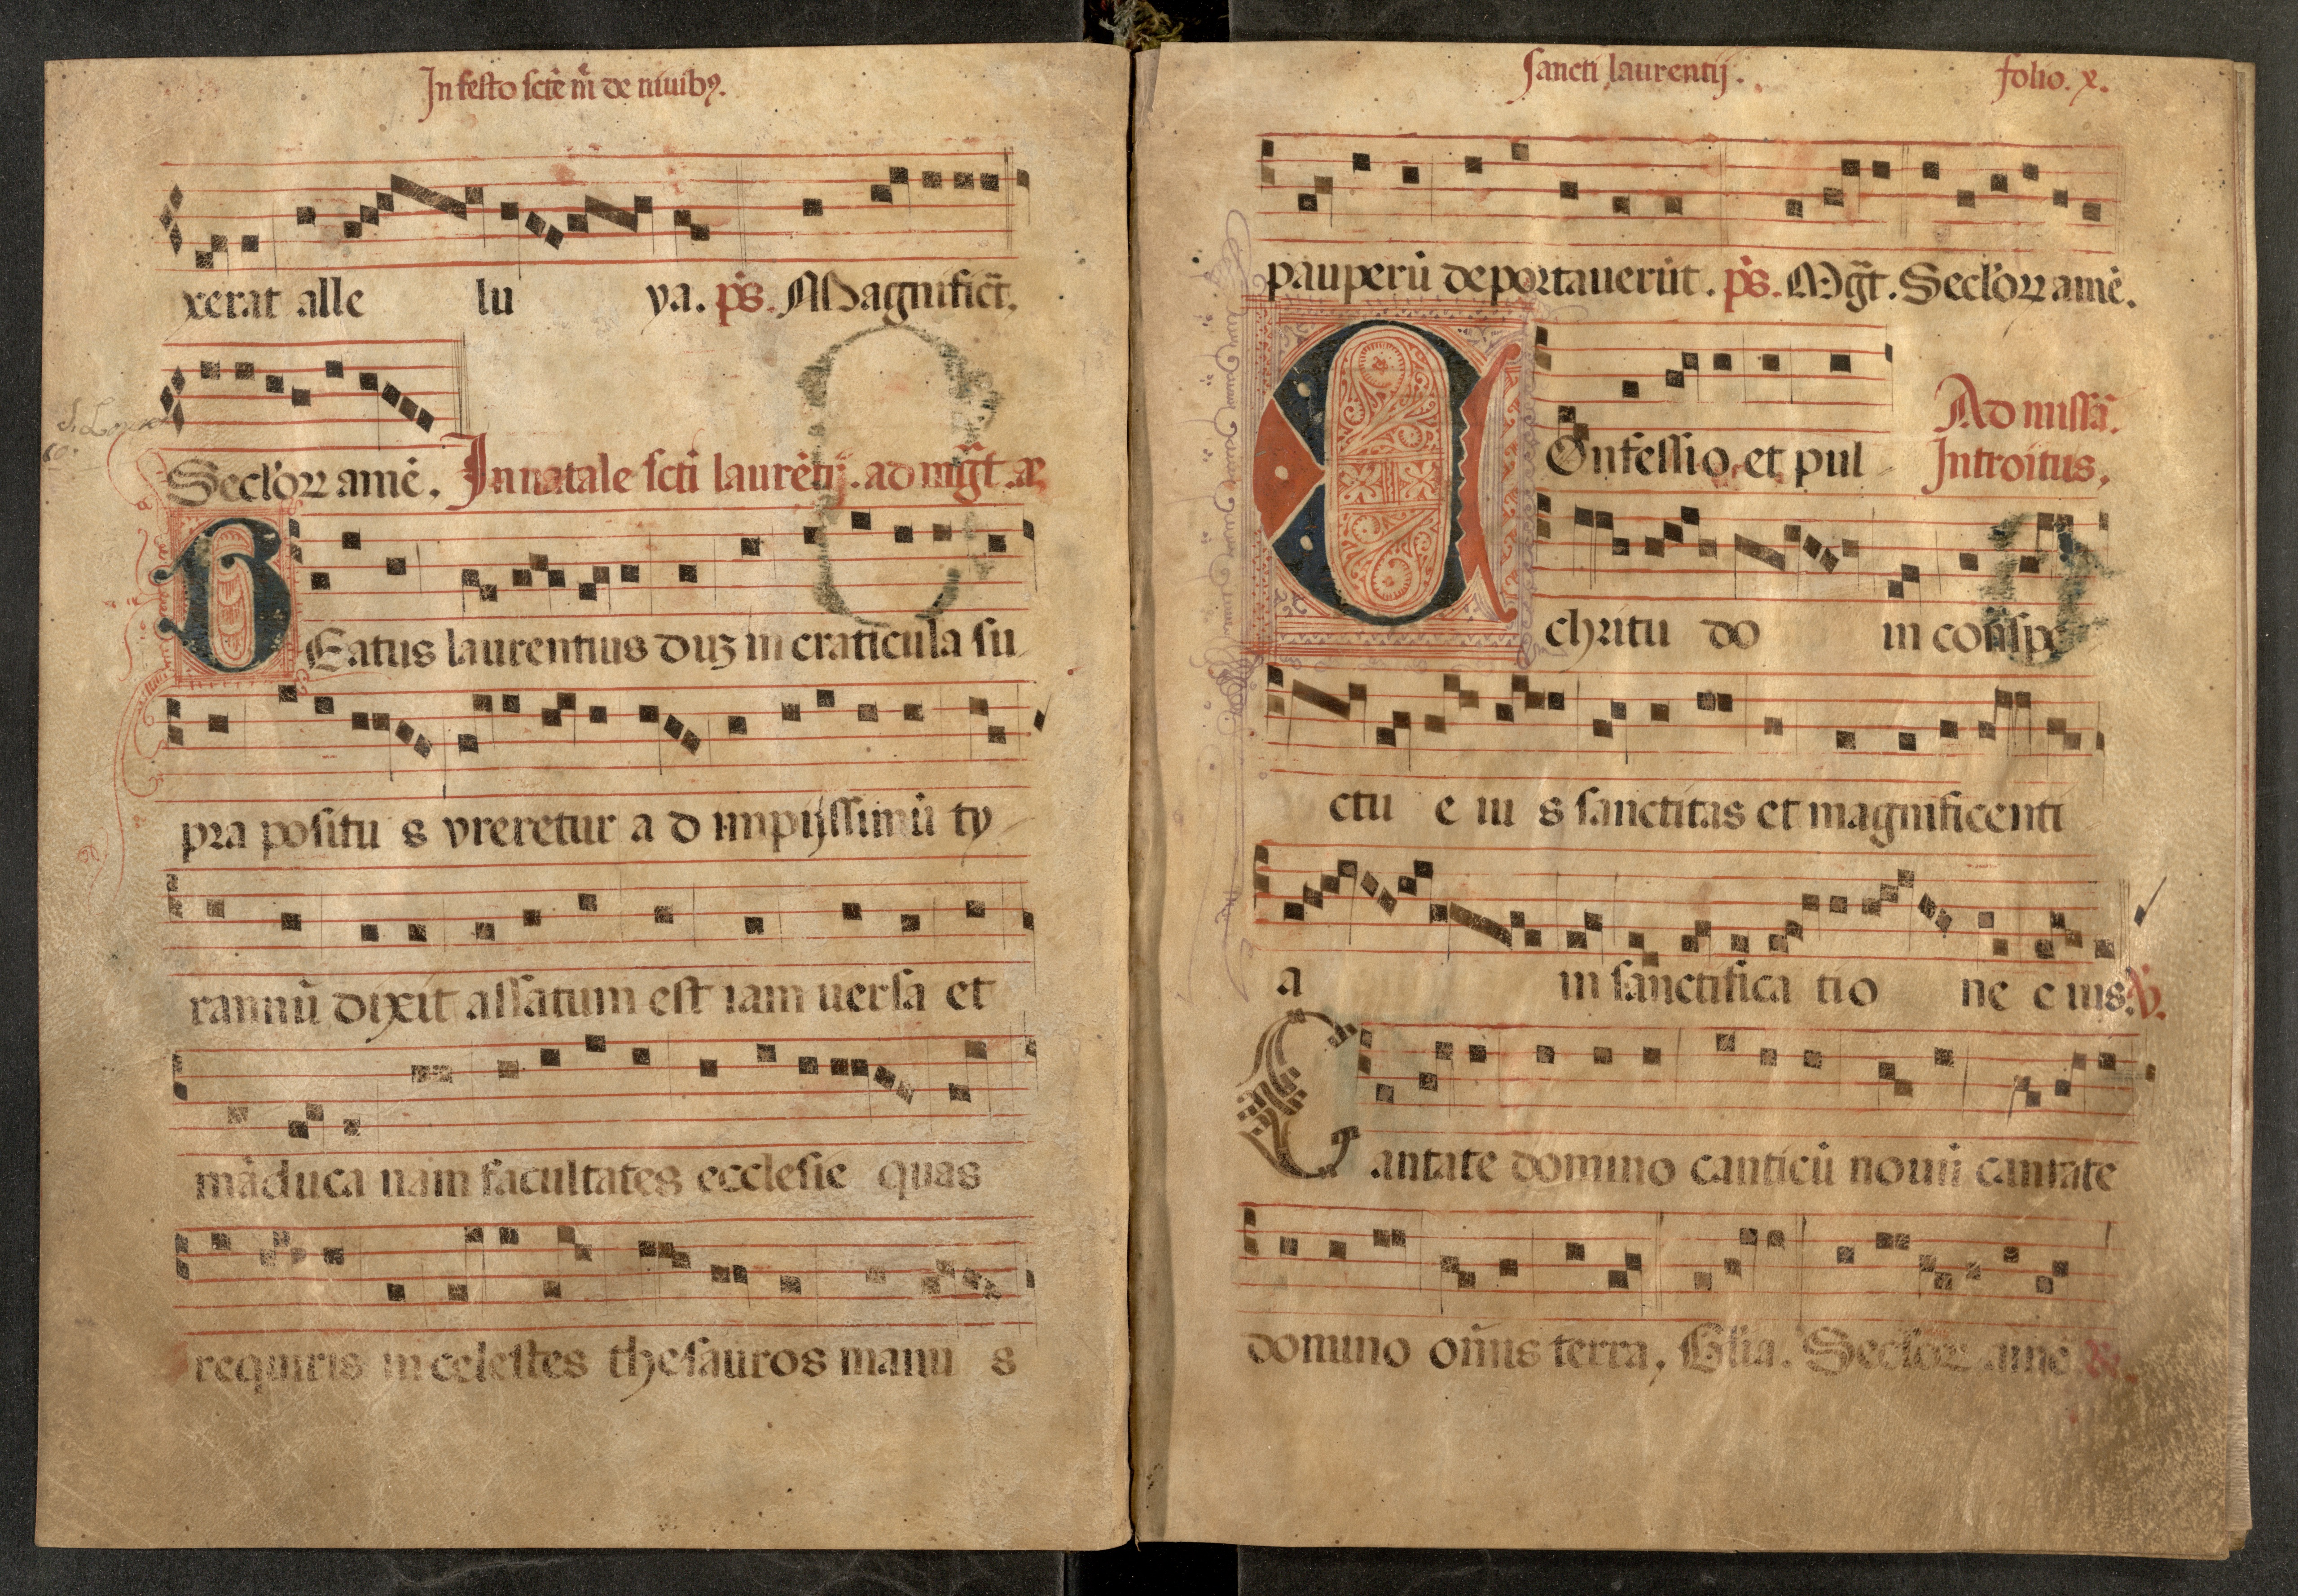 In festo scte mͤ de niuibꝰ.
xerat alle lu ya. ps. Magnifict̄.
Seclorꝝ amē. In natale scti laurētij. ad mḡt. a
BEatus laurentius duꝫ in craticula su
pra positu s vreretur a d impijssimū ty
rannū dixit assatum est iam uersa et
māduca nam facultates ecclesie quas
requiris in celestes thesauros manu s
Sancti laurentij. folio. x.
pauperū deportauerūt. ps. Mḡt. Seclorꝝ amē.
Ad missā.
COnfessio et pul Introitus,
chritu do in cōspe
ctu e iu s sanctitas et magnificenti
a in sanctifica tio ne e ius. V̄.
Cantate domino canticū nouū cantate
domino om̄is terra, Glia. Seclorꝝ amē